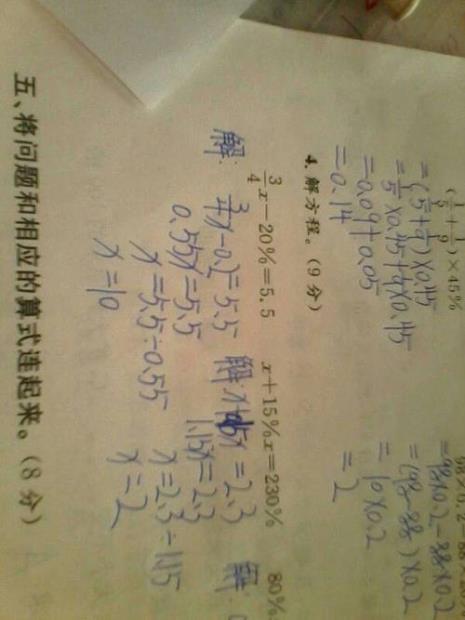 (1/5+1/9)×45%
=(1/5+1/9)×0.45
=1/5×0.45+1/9×0.45
=0.09+0.05
=0.14
=98×0.2-88×0.2
=(98-88)×0.2
=10×0.2
=2
4.解方程。(9分)
3/4x-20%=5.5
解:3/4x-0.2=5.5
0.55x=5.5
x=5.5÷0.55
x=10
x+15%x=230%
解:x+0.15x=2.3
1.15x=2.3
x=2.3÷1.15
x=2
80%
解:
五、将问题和相应的算式连起来。(8分)